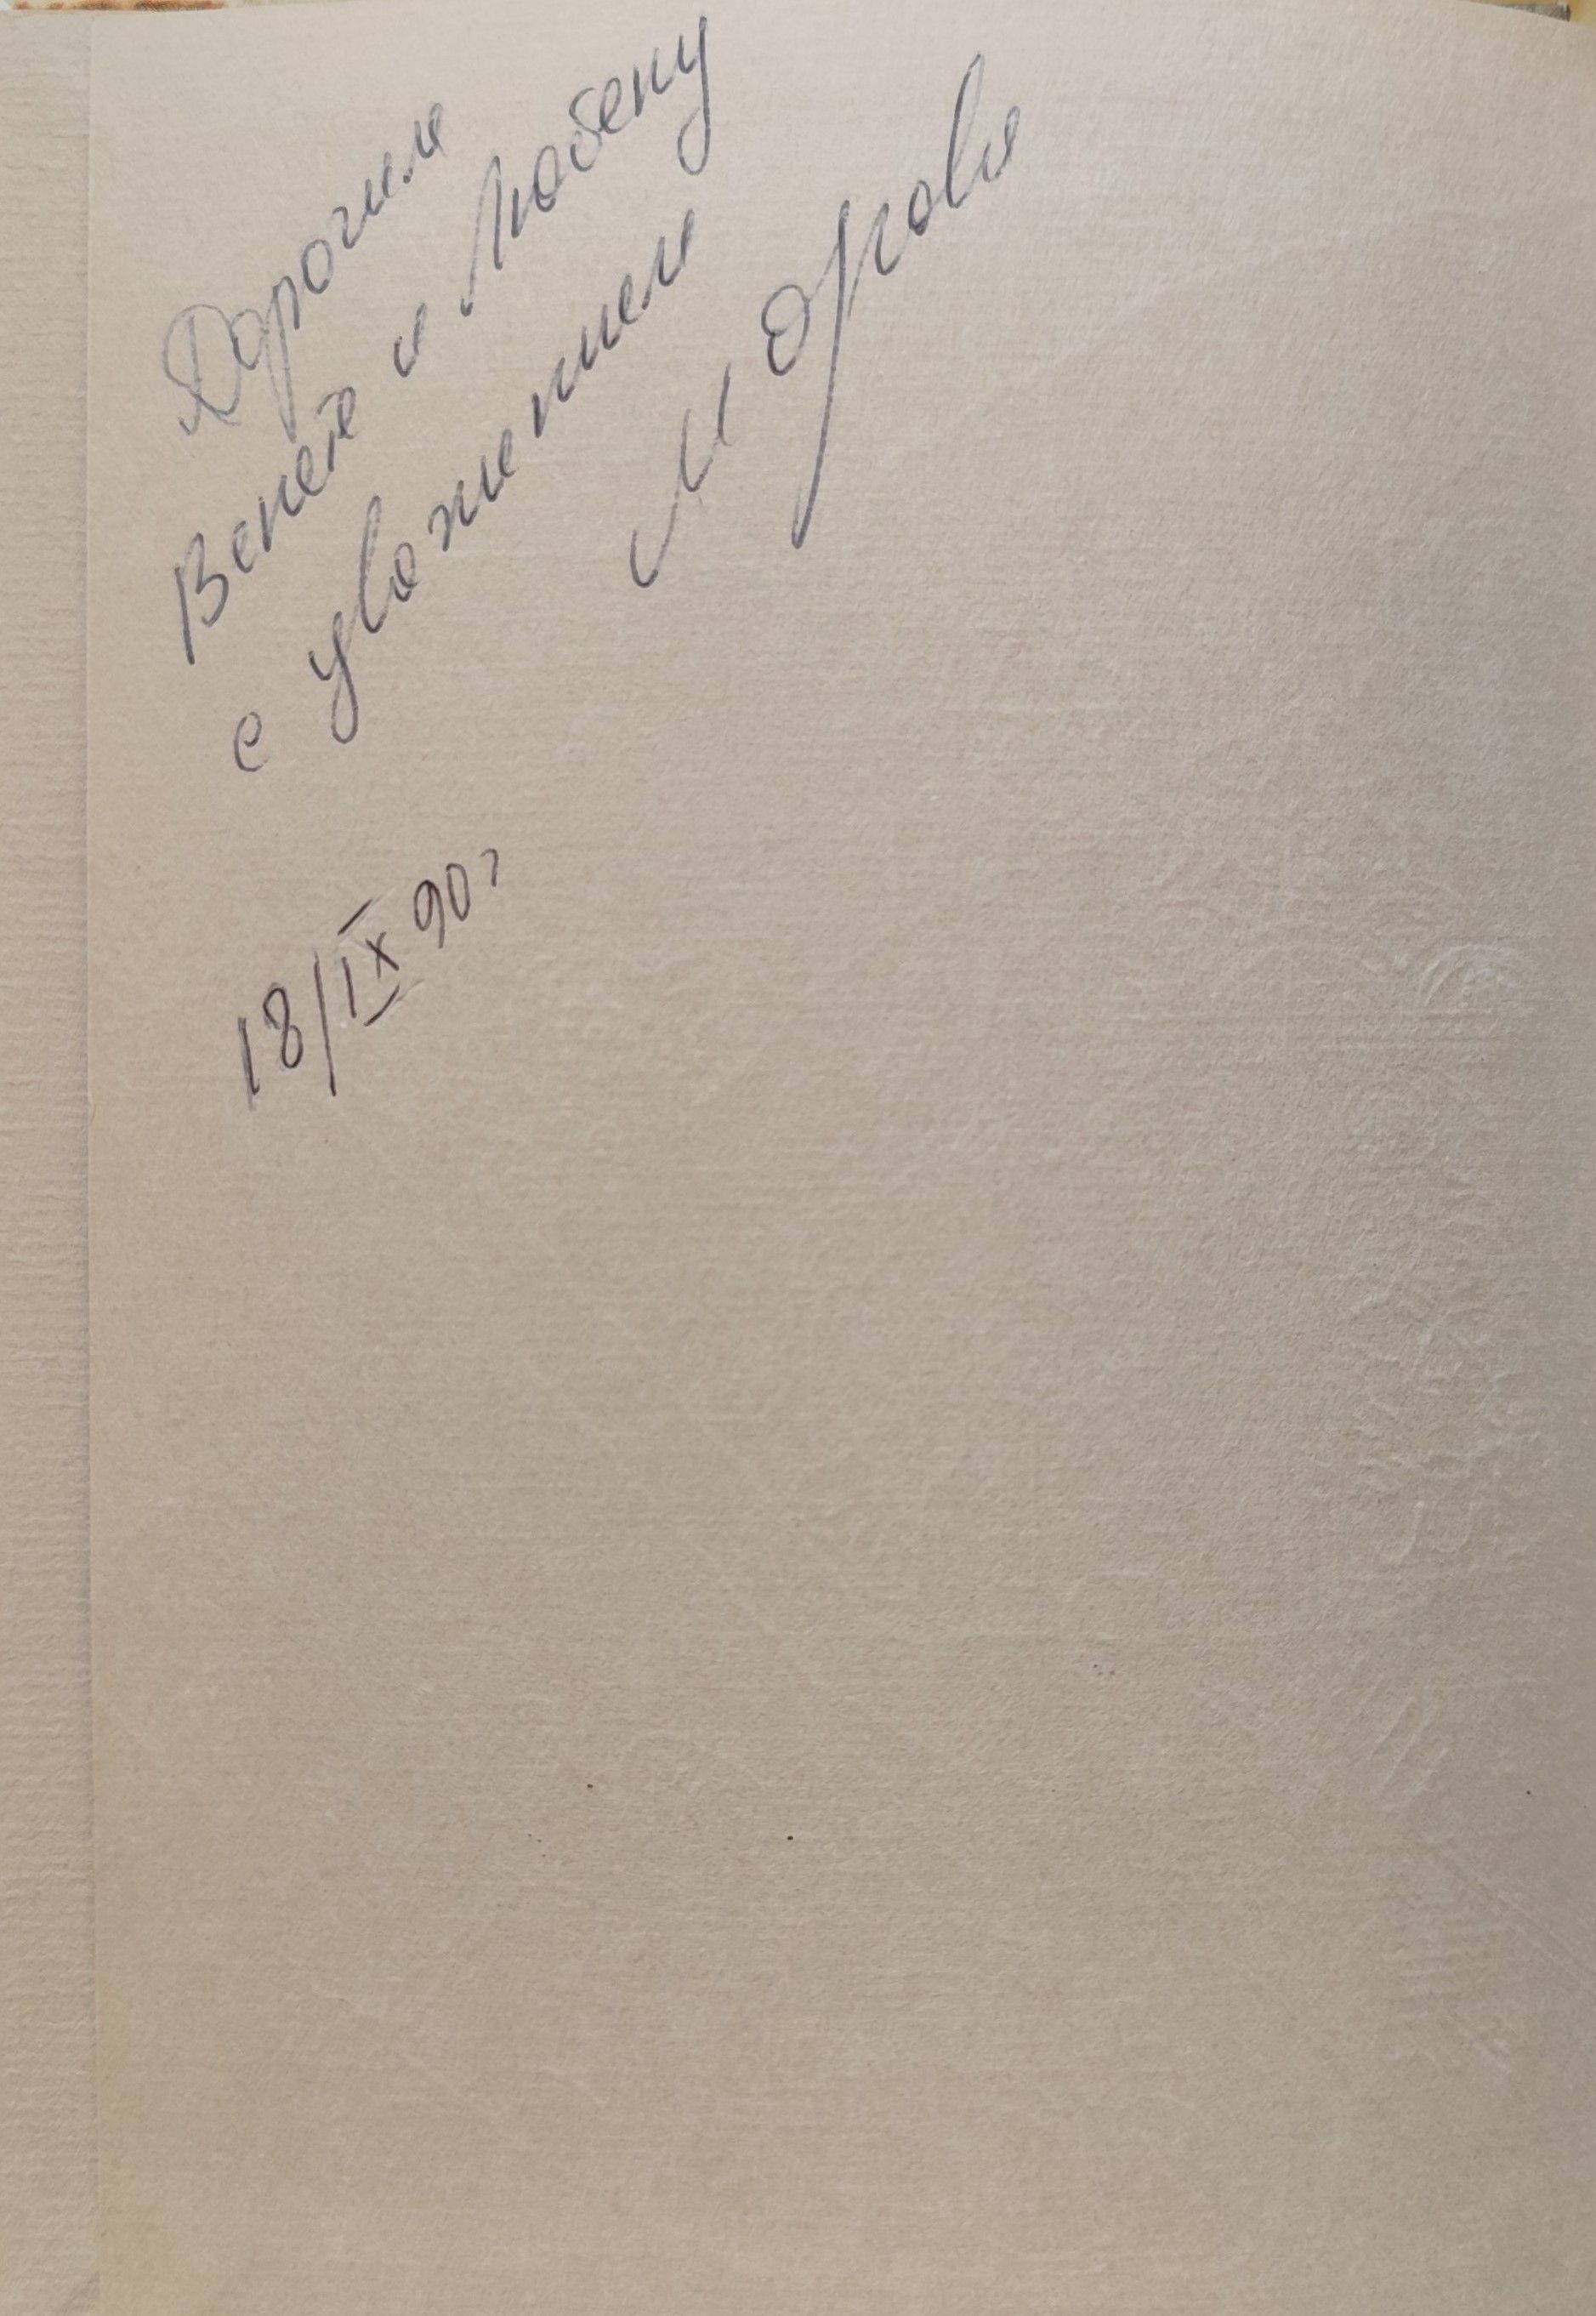 Дорогим
Венете и Любену
с уважением
М Орлова
18/IX 90 г